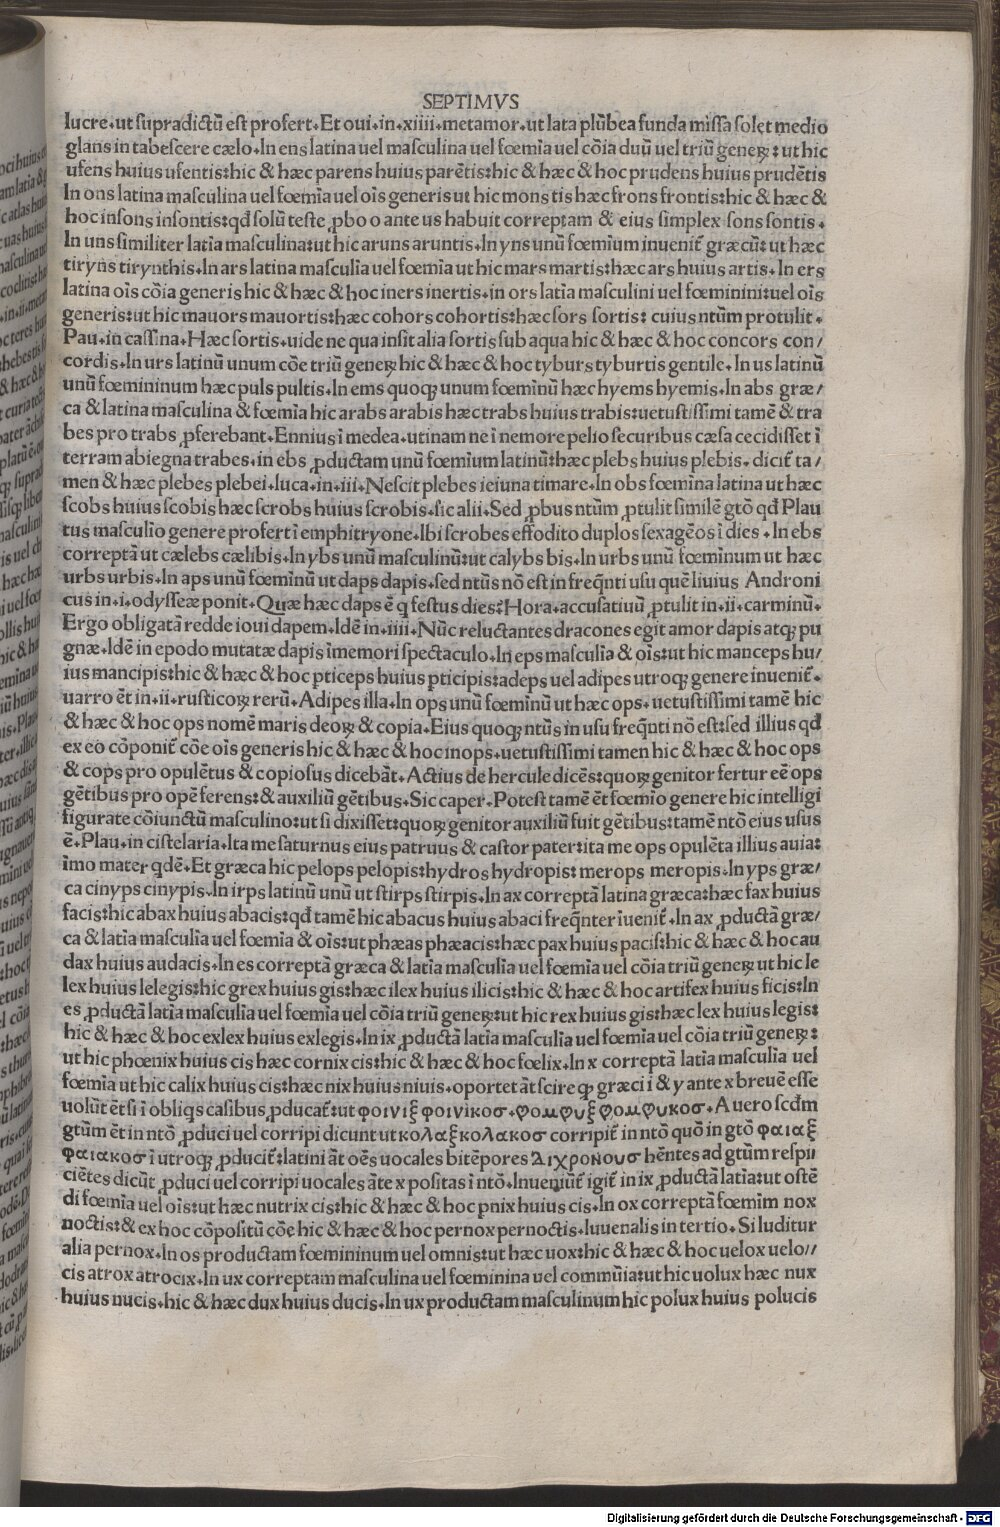 SEPTIMVS
lucre.ut supradictū est profert.Et oui.in.xiiii.metamor.ut lata plūbea funda missa solet medio
glans in tabescere cælo.In ens latina uel masculina uel fœmīa uel cōia duū uel triū geneꝝ:ut hic
ufens huius ufentis:hic & hæc parens huius parētis:hic & hæc & hoc prudens huius prudētis
In ons latina masculina uel fœmīa uel oīs generis ut hic mons tis hæc frons frontis:hic & hæc &
hoc insons insontis:qđ solū teste ꝓbo o ante us habuit correptam & eius simplex sons sontis.
In uns similiter latīa masculina:ut hic aruns aruntis.In yns unū fœmīum inuenit̄ græcū:ut hæc
tiryns tirynthis.In ars latina masculīa uel fœmīa ut hic mars martis:hæc ars huius artis.In ers
latina oīs cōia generis hic & hæc & hoc iners inertis.in ors latīa masculini uel fœminini:uel oīs
generis:ut hic mauors mauortis:hæc cohors cohortis:hæc sors sortis: cuius ntūm protulit.
Pau.in cassina.Hæc sortis.uide ne qua insit alia sortis sub aqua hic & hæc & hoc concors con/
cordis.In urs latinū unum cōe triū geneꝝ hic & hæc & hoc tyburs tyburtis gentile.In us latinū
unū fœmininum hæc puls pultis.In ems quoqꝫ unum fœmīnū hæc hyems hyemis.In abs græ/
ca & latina masculina & fœmīa hic arabs arabis hæc trabs huius trabis:uetustissimi tamē & tra
bes pro trabs ꝓferebant.Ennius ī medea.utinam ne ī nemore pelio securibus cæsa cecidisset ī
terram abiegna trabes.in ebs ꝓductam unū fœmīum latinū:hæc plebs huius plebis.dicit̄ ta/
men & hæc plebes plebei.luca.in.iii.Nescit plebes ieiuna timare.In obs fœmīna latina ut hæc
scobs huius scobis hæc scrobs huius scrobis.sic alii.Sed ꝓbus ntūm ꝓtulit similē gtō qđ Plau
tus masculīo genere profert ī emphitryone.Ibi scrobes effodito duplos sexagēos ī dies.In ebs
correptā ut cælebs cælibis.In ybs unū masculinū:ut calybs bis.In urbs unū fœmīnum ut hæc
urbs urbis.In aps unū fœmīnū ut daps dapis.sed ntūs nō est in freq̄nti usu quē liuius Androni
cus in.i.odysseæ ponit.Quæ hæc daps ē q festus dies:Hora.accusatiuū ꝓtulit in.ii.carminū.
Ergo obligatā redde ioui dapem.Idē in.iiii.Nūc reluctantes dracones egit amor dapis atqꝫ pu
gnæ.Idē in epodo mutatæ dapis īmemori spectaculo.In eps masculīa & oīs:ut hic manceps hu/
ius mancipis:hic & hæc & hoc pticeps huius pticipis:adeps uel adipes utroqꝫ genere inuenit̄.
uarro ēt in.ii.rusticoꝝ rerū.Adipes illa.In ops unū fœmīnū ut hæc ops.uetustissimi tamē hic
& hæc & hoc ops nomē maris deoꝝ & copia.Eius quoqꝫ ntūs in usu freq̄nti nō est:sed illius qđ
ex eo cōponit̄ cōe oīs generis hic & hæc & hoc inops.uetustissimi tamen hic & hæc & hoc ops
& cops pro opulētus & copiosus dicebāt.Actius de hercule dicēs:quoꝝ genitor fertur eē ops
gētibus pro opē ferens:& auxiliū gētibus.Sic caper.Potest tamē ēt fœmīo genere hic intelligi
figurate cōiunctū masculino:ut si dixisset:quoꝝ genitor auxiliū fuit gētibus:tamē ntō eius usus
ē.Plau.in cistelaria.Ita me saturnus eius patruus & castor pater:ita me ops opulēta illius auia:
īmo mater qdē.Et græca hic pelops pelopis:hydros hydropis:merops meropis.In yps græ/
ca cinyps cinypis.In irps latinū unū ut stirps stirpis.In ax correptā latina græca:hæc fax huius
facis:hic abax huius abacis:qđ tamē hic abacus huius abaci freq̄nter īuenit̄.In ax ꝓductā græ/
ca & latīa masculīa uel fœmīa & oīs:ut phæas phæacis:hæc pax huius pacis:hic & hæc & hoc au
dax huius audacis.In es correptā græca & latīa masculīa uel fœmīa uel cōia triū geneꝝ ut hic le
lex huius lelegis:hic grex huius gis:hæc ilex huius ilicis:hic & hæc & hoc artifex huius ficis:In
es ꝓductā latīa masculīa uel fœmīa uel cōia triū geneꝝ:ut hic rex huius gis:hæc lex huius legis:
hic & hæc & hoc exlex huius exlegis.In ix ꝓductā latīa masculīa uel fœmīa uel cōia triū geneꝝ:
ut hic phœnix huius cis hæc cornix cis:hic & hæc & hoc fœlix.In x correptā latīa masculīa uel
fœmīa ut hic calix huius cis:hæc nix huius niuis.oportet āt scire qꝫ græci i & y ante x breuē esse
uolūt ēt si ī obliqs casibus ꝓducat̄:ut φοινιξ φοινικοσ.φομφυξ φομφυκοσ.A uero scđm
gtūm ēt in ntō ꝓduci uel corripi dicunt ut κολαξ κολακοσ corripit̄ in ntō quō in gtō φαιαξ
φαιακοσ ī utroqꝫ ꝓducit̄:latini āt oēs uocales bitēpores Διχρονουσ hēntes ad gtūm respi
ciētes dicūt ꝓduci uel corripi uocales āte x positas ī ntō.Inueniūt̄ igit̄ in ix ꝓductā latīa:ut ostē
di fœmīa uel oīs:ut hæc nutrix cis:hic & hæc & hoc pnix huius cis.In ox correptā fœmīm nox
noctis:& ex hoc cōpositū cōe hic & hæc & hoc pernox pernoctis.Iuuenalis in tertio.Si luditur
alia pernox.In os productam fœmininum uel omnis:ut hæc uox:hic & hæc & hoc uelox uelo//
cis atrox atrocix.In ux correptam masculina uel fœminina uel commūia:ut hic uolux hæc nux
huius nucis.hic & hæc dux huius ducis.In ux productam masculinum hic polux huius polucis
Digitalisierung gefördert durch die Deutsche Forschungsgemeinschaft - DFG